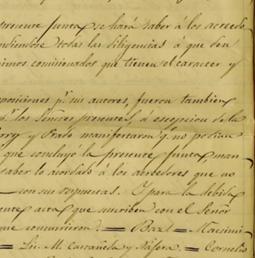 presente Junta se hará saber á los acreedo
endiendose todas las diligencias á que den
ismos comisionados que tienen el caracter y
posiciones pr. sus autores, fueron tambien
á los Señores presentes, á escepcion de la
ory y Prado manifestaron qe. no podian
que concluyó la presente Junta, man
saber lo acordado á los acreedores que no
con sus repuestas. Y para la debida
ente acta que suscriben con el Señor
que concurrieron = Bazl. = Macsimi
= Lic. M. Castañeda y Nájera. = Cornelio